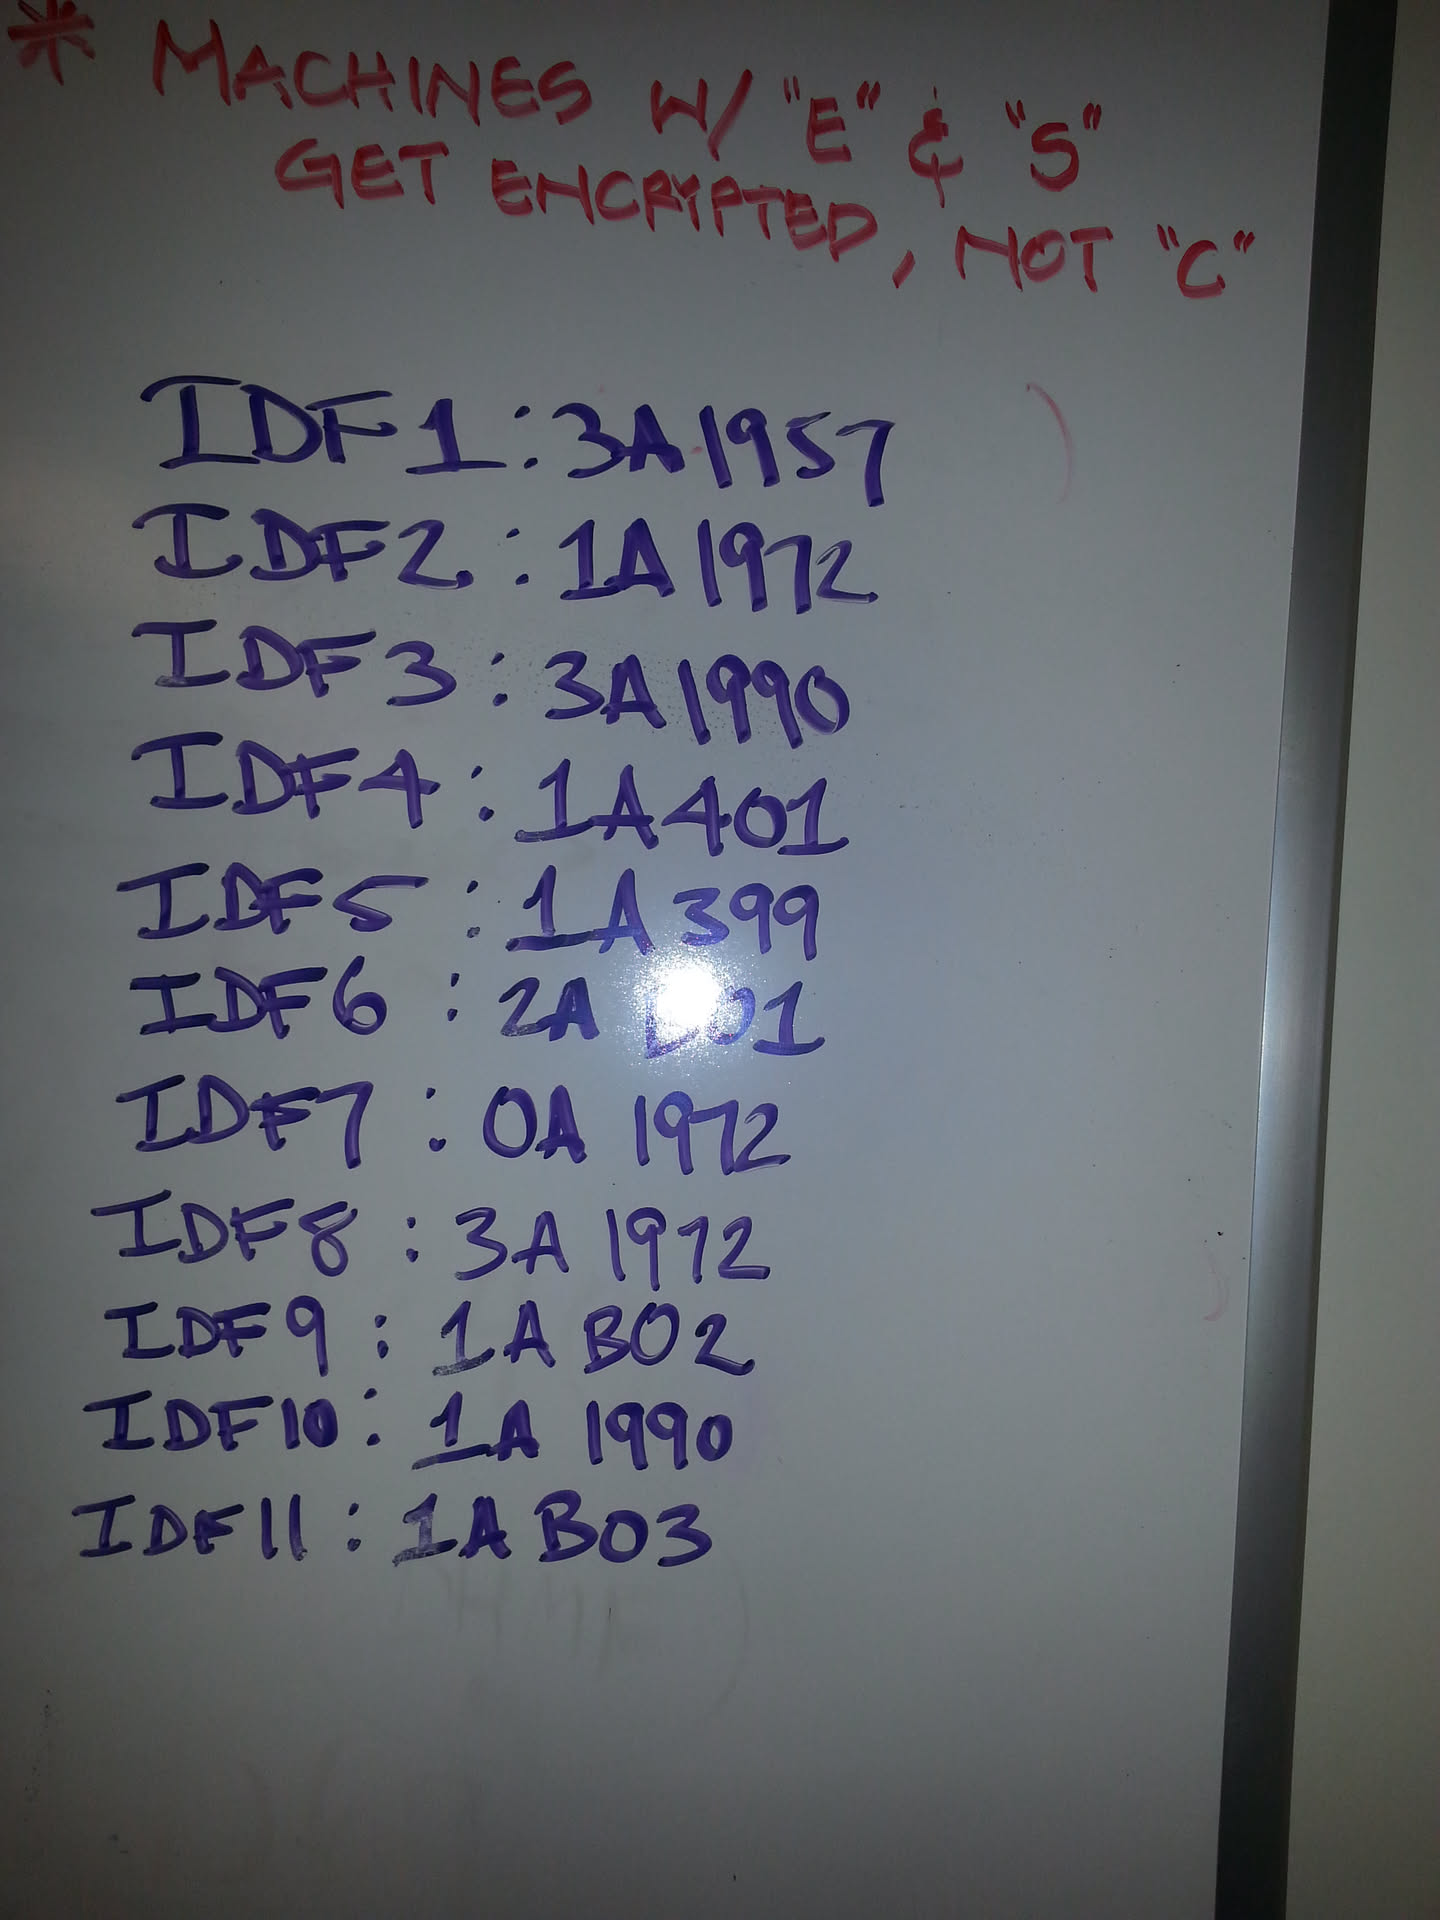 * MACHINES W/ "E" & "S"
GET ENCRYPTED, NOT "C"
IDF1: 3A1957
IDF2: 1A1972
IDF3: 3A1990
IDF4: 1A401
IDF5: 1A399
IDF6: 2A
IDF7: 0A 1972
IDF8: 3A 1972
IDF9: 1A B02
IDF10: 1A 1990
IDF11: 1A B03